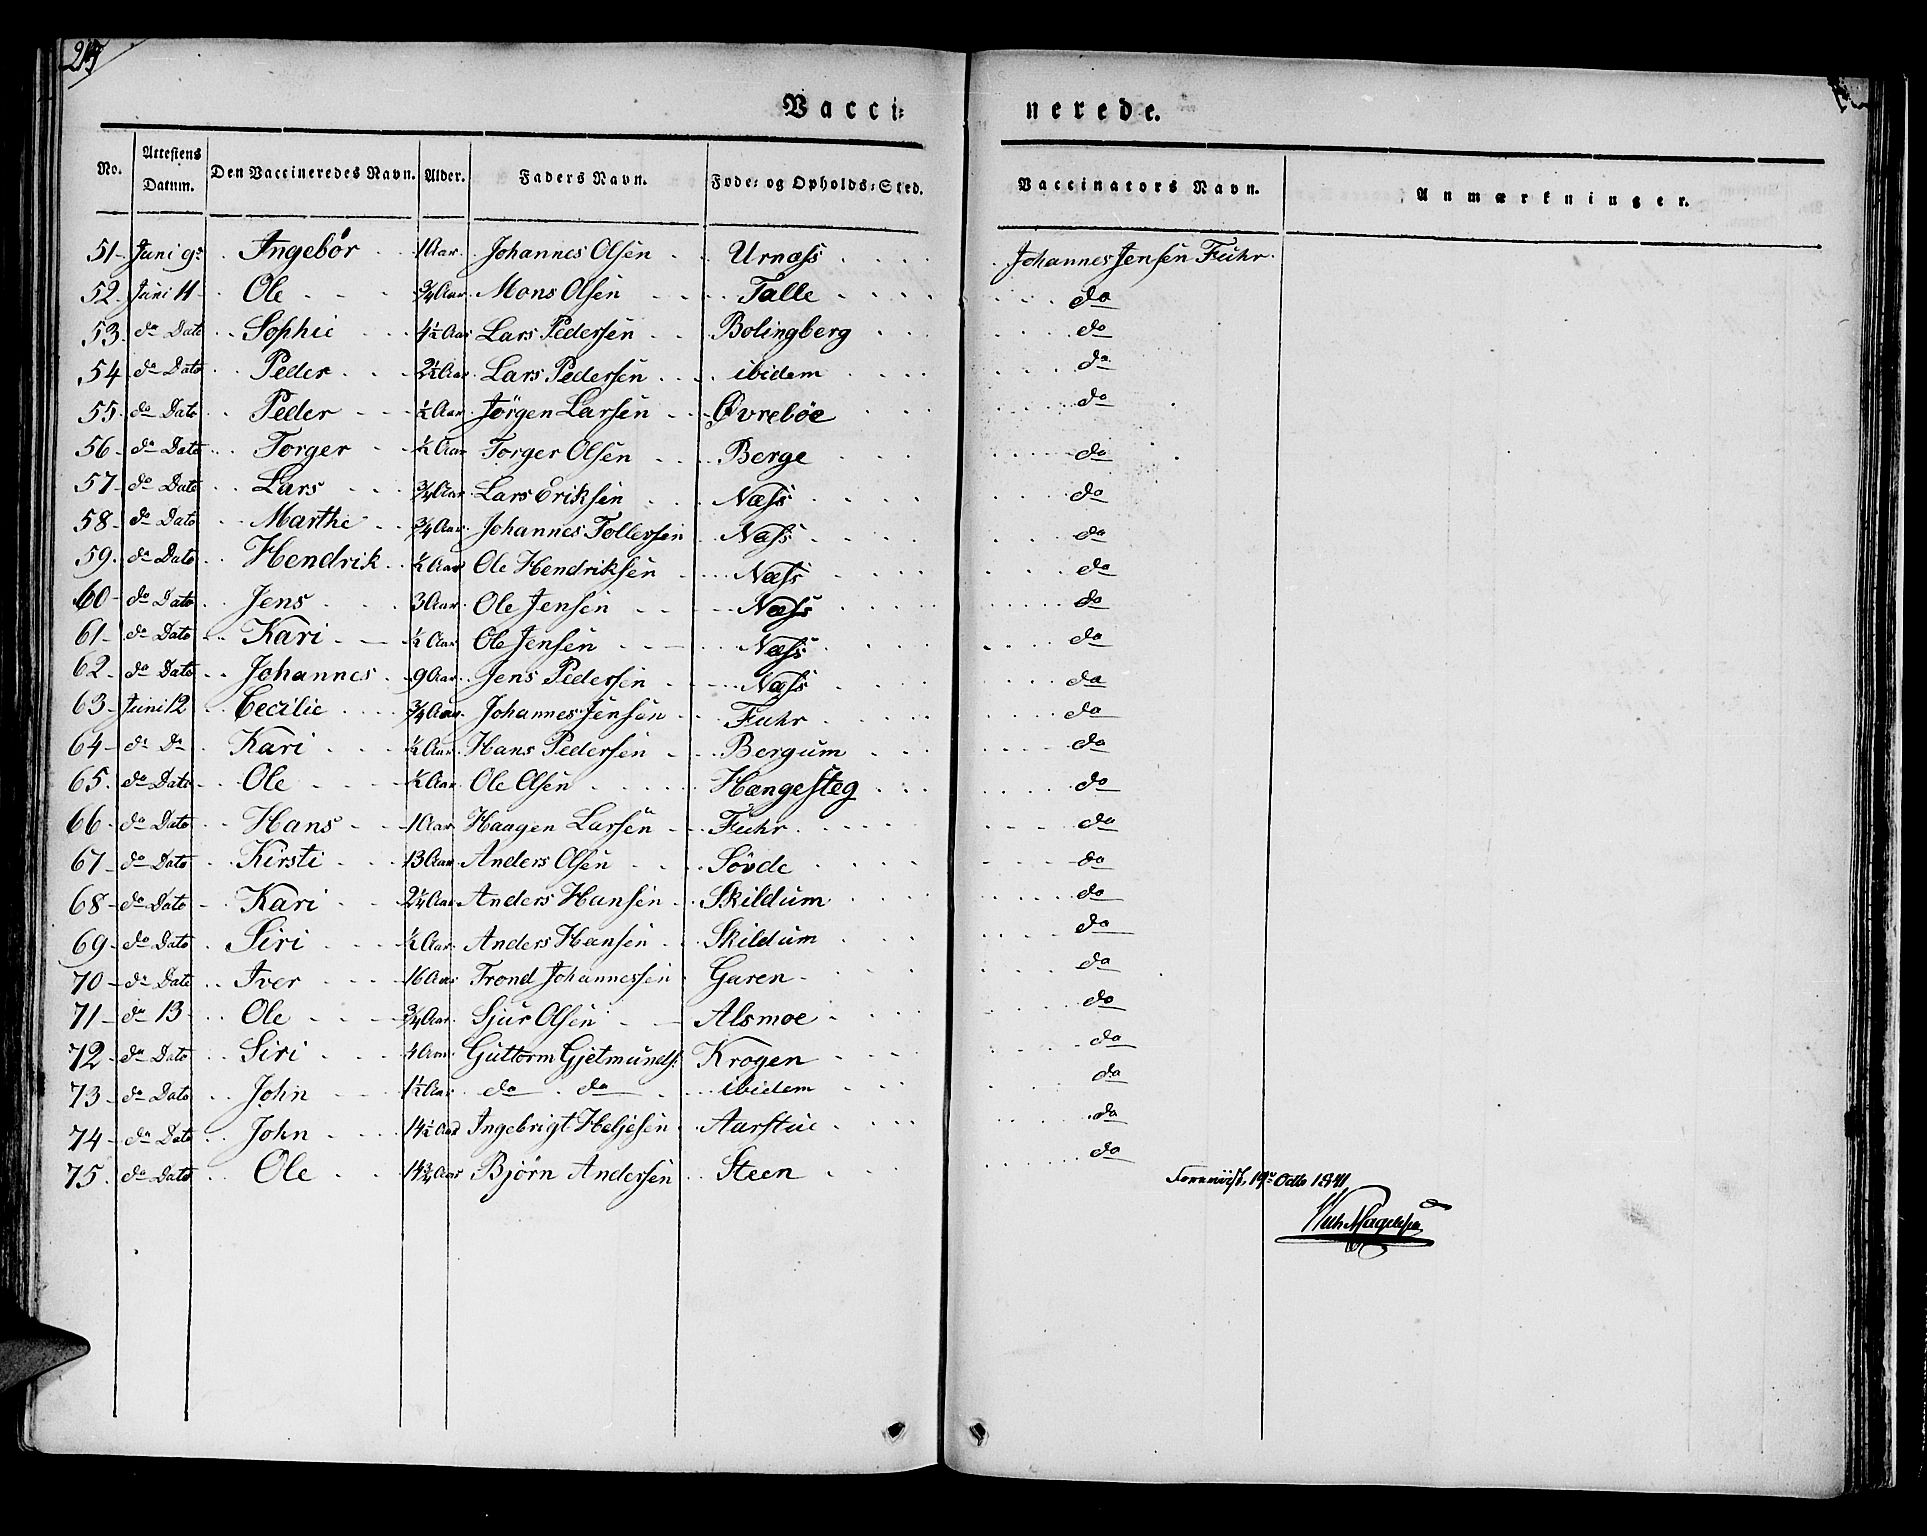 Vacci: nerede.
No. Attestens Datum. Den Vaccineredes Navn. Alder. Faders Navn. Føde: og Opholds: Sted. Vaccinators Navn. Anmærkninger.
51 Juni 9de Ingebør 1 Aar Johannes Olsen Urnæss Johannes Jensen Fuhr
52 Juni 11 Ole 3/4 Aar Mons Olsen Talle do
53 do Dato Sophie 4 1/2 Aar Lars Pedersen Bolingberg do
54 do Dato Peder 2 1/2 Aar Lars Pedersen ibidem do
55 do Dato Peder 1/2 Aar Jørgen Larsen Øvrebøe do
56 do Dato Torger 1/2 Aar Torger Olsen Berge do
57 do Dato Lars 3/4 Aar Lars Eriksen Næss do
58 do Dato Marthe 3/4 Aar Johannes Tollersen Næss do
59 do Dato Hendrik 1/2 Aar Ole Hendriksen Næss do
60 do Dato Jens 3 Aar Ole Jensen Næss do
61 do Dato Kari 1/2 Aar Ole Jensen Næss do
62 do Dato Johannes 9 Aar Jens Pedersen Næss do
63 Juni 12 Cecilie 3/4 Aar Johannes Jensen Fuhr do
64 do Do Kari 1/2 Aar Hans Pedersen Bergum do
65 do Dato Ole 1/2 Aar Ole Olsen Hængesteg do
66 do Dato Hans 1 Aar Haagen Larsen Fuhr do
67 do Dato Kirsti 13 Aar Anders Olsen Søvde do
68 do Dato Kari 2 1/4 Aar Anders Hansen Skildum do
69 do Dato Siri 1/2 Aar Anders Hansen Skildum do
70 do Dato Iver 16 Aar Trond Johannessen Garen do
71 do 13 Ole 3/4 Aar Sjur Olsen Alsmoe do
72 do Dato Siri Aar Guttorm Gjetmunds: Krogen do
73 do Dato John 1 1/2 Aar do do ibidem do
74 do Dato John 14 1/2 Aar Ingebrigt Heljesen Aarstue do
75 do Dato Ole 14 3/4 Aar Bjørn Andersen Steen do
19de Octb 1841